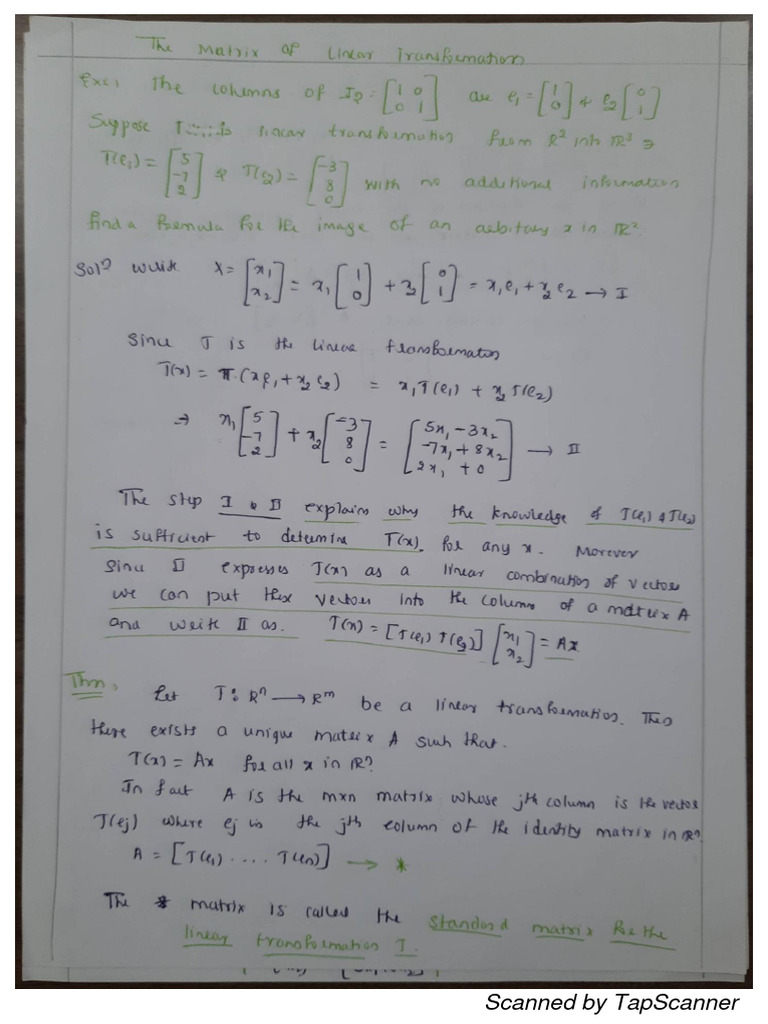 The Matrix of Linear Transformation
Ex:, The columns of I2 = [1 0 0 1] are e1 = [1 0] & e2 [0 1]
Suppose T is linear transformation from R² into R³ ∋
T(e1) = [5 -7 2] & T(e2) = [-3 8 0] with no additional information
find a formula for the image of an arbitary x in R².
Solⁿ write X = [x1 x2] = x1 [1 0] + x2 [0 1] = x1e1 + x2e2 → I
Since T is the linear transformation
T(x) = T.(x1e1 + x2e2) = x1T(e1) + x2T(e2)
→ x1 [5 -7 2] + x2 [-3 8 0] = [5x1 - 3x2 -7x1 + 8x2 2x1 + 0] → II
The step I & II explains why the knowledge of T(e1) & T(e2)
is sufficient to determine T(x). for any x. Morever
Since II expresses T(x) as a linear combination of vectors
we can put these vectors into the columns of a matrix A
and write II as. T(x) = [T(e1) T(e2)] [x1 x2] = Ax
Thm:, Let T: Rⁿ → Rᵐ be a linear transformation. Then
there exists a unique matrix A such that.
T(x) = Ax for all x in Rⁿ.
In fact A is the mxn matrix whose jth column is the vector
T(ej) where ej is the jth column of the identity matrix in Rⁿ.
A = [T(e1) .... T(en)] → *
The * matrix is called the standard matrix for the
linear transformation T.
Scanned by TapScanner